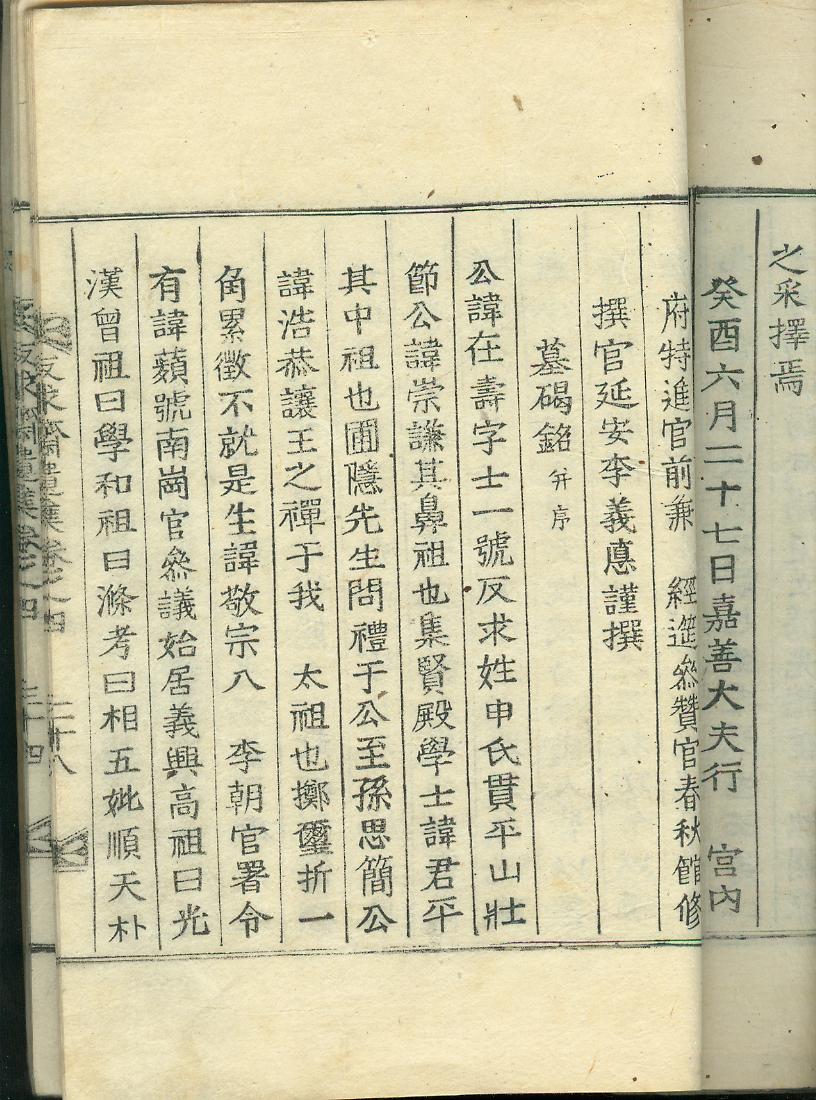 之采擇焉
癸酉六月二十七日嘉善大夫行 宮內
府特進官前兼 經筵參贊官春秋館修
撰官延安李義悳謹撰
墓碣銘 并序
公諱在壽字士一號反求姓申氏貫平山壯
節公諱崇謙其鼻祖也集賢殿學士諱君平
其中祖也圃隱先生問禮于公至孫思簡公
諱浩恭讓王之禪于我 太祖也擲璽折一
角累徵不就是生諱敬宗入 李朝官署令
有諱蘋號南崗官參議始居義興高祖曰光
漢曾祖曰學和祖曰滌考曰相五妣順天朴
反求齋遺集卷之四 二十八